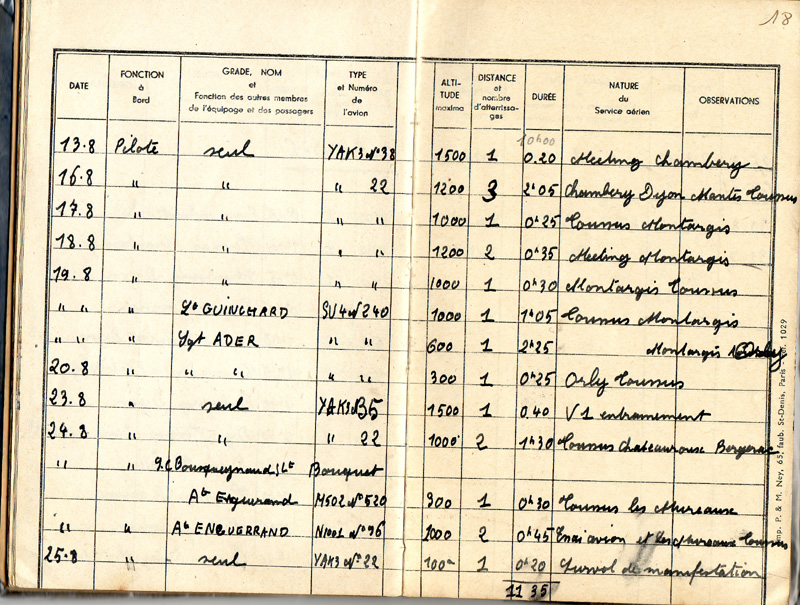 18
DATE FONCTION à Bord GRADE, NOM et Fonction des autres membres de l'équipage et des passagers TYPE et Numéro de l'avion ALTITUDE maxima DISTANCE et nombre d'atterrissages DURÉE NATURE du Service aérien OBSERVATIONS
10h00
13.8 Pilote seul YAK3 N°38 1500 1 0.20 Meeting Chambery
16.8 " " " 22 1200 3 2h05 Chambery Dyon Mantes Toussus
17.8 " " " " 1000 1 0h25 Toussus Montargis
18.8 " " " " 1200 2 0h35 Meeting Montargis
19.8 " " " " 1000 1 0h30 Montargis Toussus
" " " Lt GUINCHARD SV4 N°240 1000 1 1h05 Toussus Montargis
" " " Sgt ADER " " 600 1 2h25 Montargis Orly
20.8 " " " " " 300 1 0h25 Orly Toussus
23.8 " seul YAK3 N°35 1500 1 0.40 V1 entrainement
24.8 " " " 22 1000 2 1h30 Toussus Chateauroux Bergerac
" " Bouquet
Enguerand M502 N°520 900 1 0h30 Toussus les Mureaux
" " ENGUERRAND N1001 N°96 2 0h45 avion et les Mureaux Toussus
25.8 " seul YAK3 N°22 1 0h20 Survol de manifestation
11 35
Imp. P. & M. Ney, 65, faub. St-Denis, Paris 1029